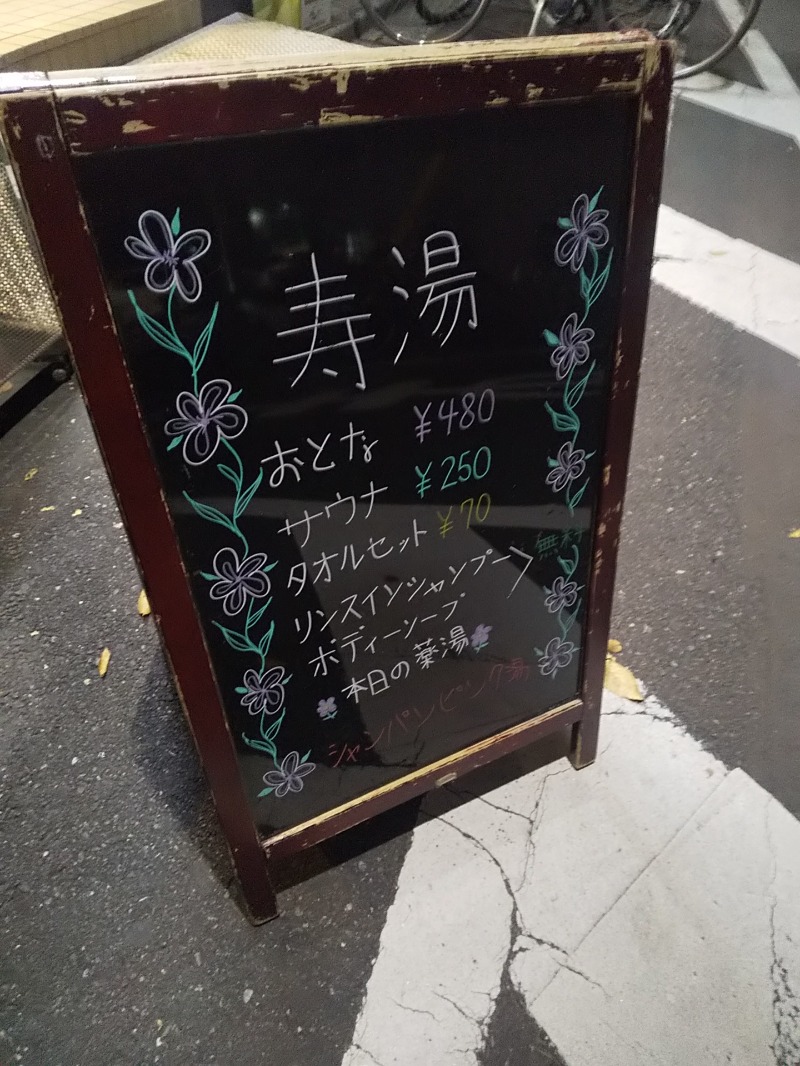 寿湯
おとな ¥480
サウナ ¥250
タオルセット ¥70
リンスインシャンプー
ボディーソープ
無料
本日の薬湯
シャンパンピンク湯